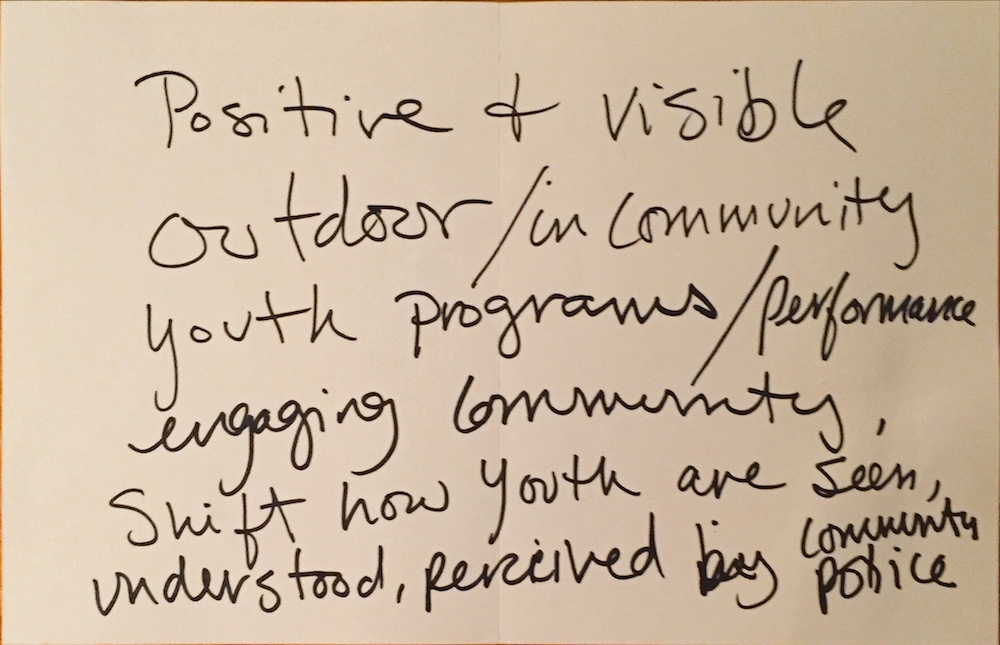 Positive & visible
outdoor/in community
youth programs/performance
engaging community,
Shift how youth are seen,
understood, perceived by community
police